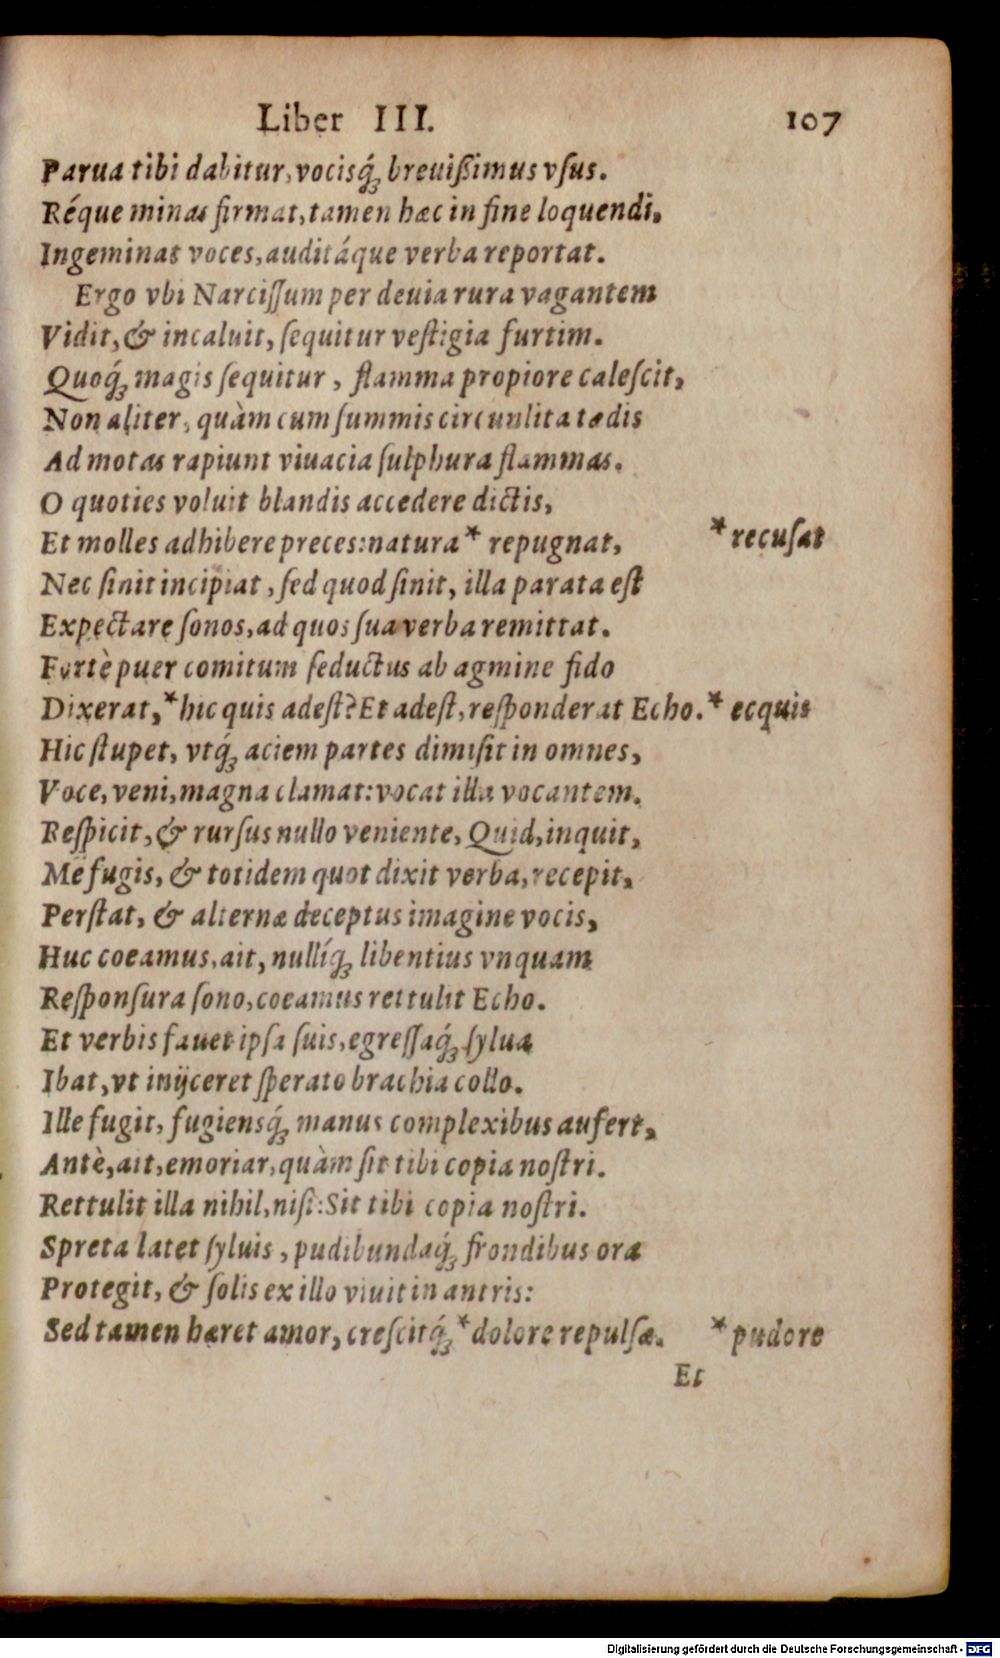 Liber III. 107
Parua tibi dabitur, vocisq́; breuißimus vſus.
Réque minas firmat, tamen hæc in fine loquendi,
Ingeminat voces, auditáque verba reportat.
Ergo vbi Narciſſum per deuia rura vagantem
Vidit, & incaluit, ſequitur veſtigia furtim.
Quoq́; magis ſequitur, flamma propiore caleſcit,
Non aliter, quàm cum ſummis circunlita tædis
Admotas rapiunt viuacia ſulphura flammas.
O quoties voluit blandis accedere dictis,
Et molles adhibere preces: natura * repugnat, * recuſat
Nec ſinit incipiat, ſed quod ſinit, illa parata eſt
Expectare ſonos, ad quos ſua verba remittat.
Fortè puer comitum ſeductus ab agmine fido
Dixerat, * hic quis adeſt? Et adeſt, reſponderat Echo. * ecquis
Hic ſtupet, vtq́; aciem partes dimiſit in omnes,
Voce, veni, magna clamat: vocat illa vocantem.
Reſpicit, & rurſus nullo veniente, Quid, inquit,
Me fugis, & totidem quot dixit verba, recepit,
Perſtat, & alternæ deceptus imagine vocis,
Huc coeamus, ait, nullíq́; libentius vnquam
Reſponſura ſono, coeamus rettulit Echo.
Et verbis fauet ipſa ſuis, egreſſaq́; ſylua
Ibat, vt inijceret ſperato brachia collo.
Ille fugit, fugiensq́; manus complexibus aufert,
Antè, ait, emoriar, quàm ſit tibi copia noſtri.
Rettulit illa nihil, niſi: Sit tibi copia noſtri.
Spreta latet ſyluis, pudibundaq́; frondibus ora
Protegit, & ſolis ex illo viuit in antris:
Sed tamen hæret amor, creſcitq́; * dolore repulſæ. * pudore
Et
Digitalisierung gefördert durch die Deutsche Forschungsgemeinschaft - DFG